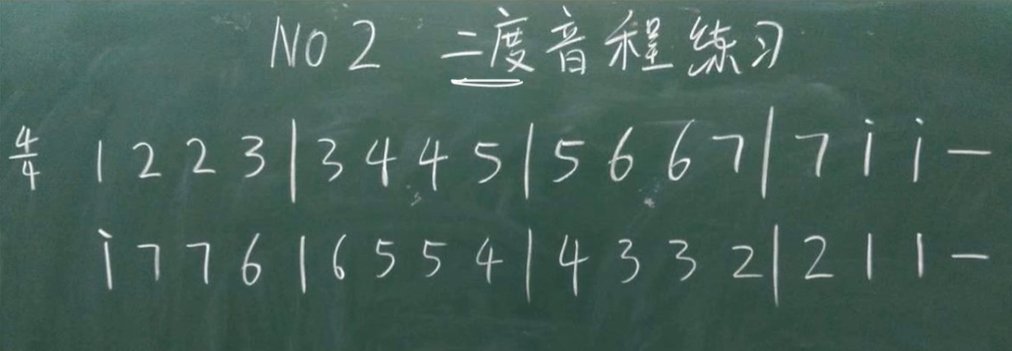 NO 2 二度音程练习
4/4 1 2 2 3 | 3 4 4 5 | 5 6 6 7 | 7 i i —
i 7 7 6 | 6 5 5 4 | 4 3 3 2 | 2 1 1 —